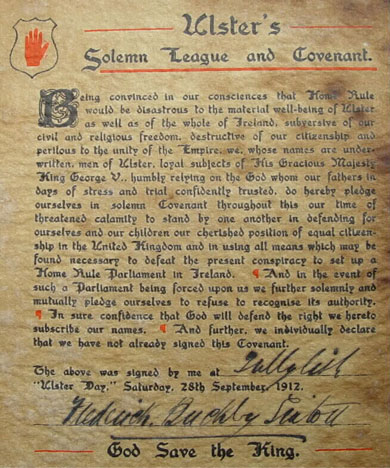 Ulster's
Solemn League and Covenant.
Being convinced in our consciences that Home Rule
would be disastrous to the material well-being of Ulster
as well as of the whole of Ireland, subversive of our
civil and religious freedom, destructive of our citizenship and
perilous to the unity of the Empire, we, whose names are under-
written, men of Ulster, loyal subjects of His Gracious Majesty
King George V., humbly relying on the God whom our fathers in
days of stress and trial confidently trusted, do hereby pledge
ourselves in solemn Covenant throughout this our time of
threatened calamity to stand by one another in defending for
ourselves and our children our cherished position of equal citizen-
ship in the United Kingdom and in using all means which may be
found necessary to defeat the present conspiracy to set up a
Home Rule Parliament in Ireland. ¶ And in the event of
such a Parliament being forced upon us we further solemnly and
mutually pledge ourselves to refuse to recognise its authority.
¶ In sure confidence that God will defend the right we hereto
subscribe our names. ¶ And further, we individually declare
that we have not already signed this Covenant.
The above was signed by me at Tullylish
"Ulster Day," Saturday, 28th September, 1912.
Frederick Buckby Sinton
God Save the King.